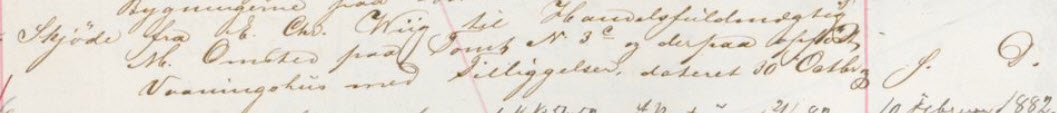 Bygningerne paa
Skjøde fra E. Chr. Wiig til Handelsfuldmægtig
M. Omsted paa Tomt N 3 c og derpaa opført
Vaaningshus med Tilliggelser, dateret 30 Octbr f. D.
10 Februar 1882.